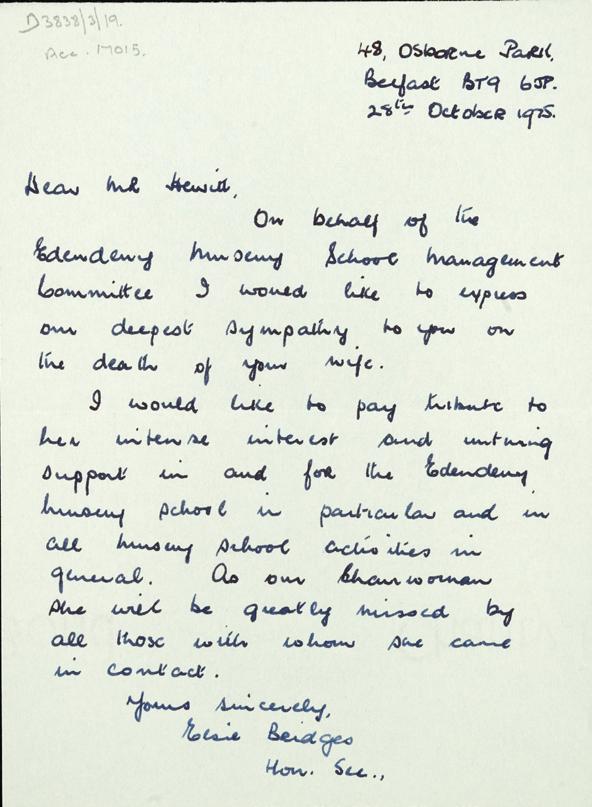 D3838/3/19.
Acc. 17015.
48, Osborne Park,
Belfast BT9 6JP.
28th October 1975.
Dear Mr Hewitt,
On behalf of the
Edenderry Nursery School Management
Committee I would like to express
our deepest sympathy to you on
the death of your wife.
I would like to pay tribute to
her intense interest and untiring
support in and for the Edenderry
Nursery School in particular and in
all nursery school activities in
general. As our Chairwoman
she will be greatly missed by
all those with whom she came
in contact.
Yours sincerely,
Elsie Bridges
Hon. Sec.,